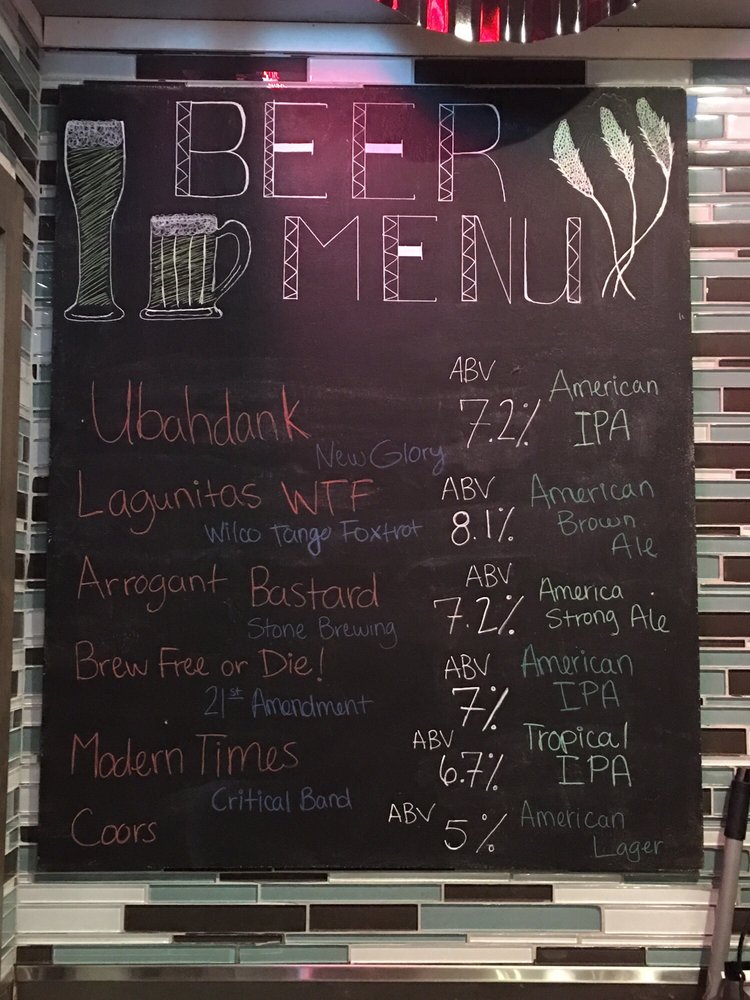 BEER
MENU
Ubahdank ABV 7.2% American IPA
New Glory
Lagunitas WTF ABV 8.1% American Brown Ale
Wilco Tango Foxtrot
Arrogant Bastard ABV 7.2% America Strong Ale
Stone Brewing
Brew Free or Die! ABV 7% American IPA
21st Amendment
Modern Times ABV 6.7% Tropical IPA
Critical Band
Coors ABV 5% American Lager